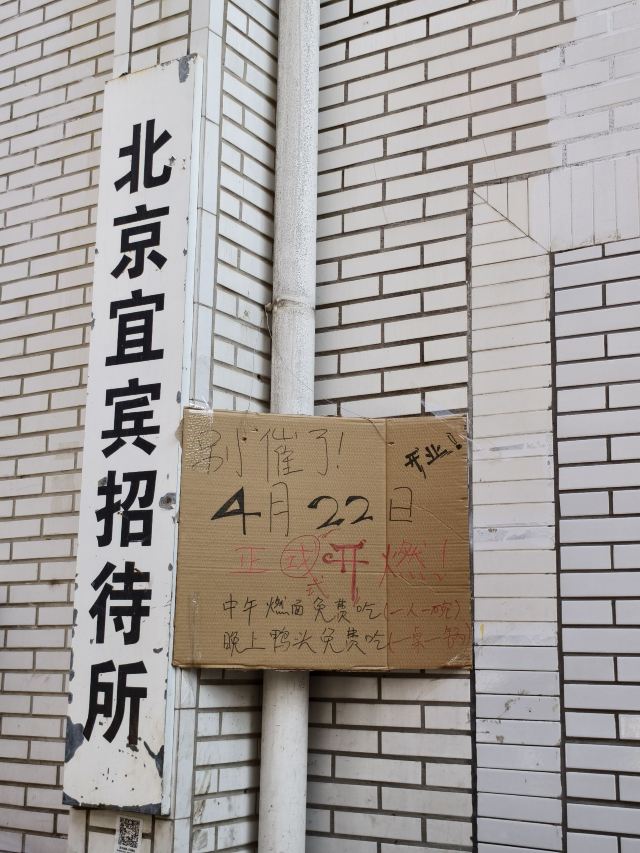 北京宜宾招待所
别催了!
开业!
4月22日
正式开燃!
式
中午燃面免费吃(一人一碗)
晚上鸭头免费吃(一桌一锅)